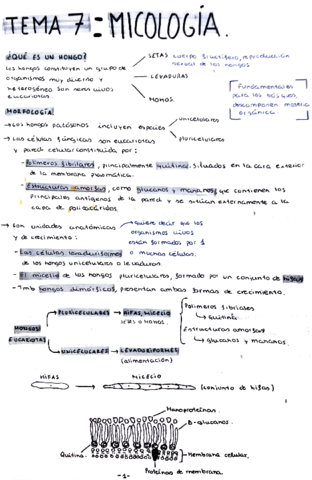 TEMA 7: MICOLOGÍA.
¿QUÉ ES UN HONGO?
Los hongos constituyen un grupo de
organismos muy diverso y
heterogéneo son seres vivos
eucariotas.
SETAS cuerpo fructífero, reproducción
sexual de los hongos
LEVADURAS
MOHOS.
Fundamentales
para los bosques,
descomponen materia
orgánica.
MORFOLOGÍA
→ Los hongos patógenos incluyen especies
unicelulares
pluricelulares
→ Las células fúngicas son eucariotas
y pared celular constituida por:
- Polímeros fibrilares, principalmente quitina. Situados en la cara exterior
de la membrana plasmática.
- Estructuras amorfas, como glucanos y mananos, que contienen los
principales antígenos de la pared y se sitúan externamente a la
capa de polisacáridos.
→ Son unidades anatómicas
y de crecimiento:
quiere decir que los
organismos vivos
están formados por 1
o muchas células.
- Las células levaduriformes
de los hongos unicelulares o levaduras.
- El micelio de los hongos pluricelulares, formado por un conjunto de hifas
- Tmb hongos dimórficos, presentan ambas formas de crecimiento.
HONGOS
EUCARIOTA
PLURICELULARES → HIFAS, MICELIO
UNICELULARES → LEVADURIFORMES
(alimentación)
Polímeros fibrilares
↳ quitina
Estructuras amorfas
↳ glucanos y mananos.
HIFAS
MICELIO
(conjunto de hifas)
Manoproteínas.
β-glucanos.
Quitina
Membrana celular.
Proteínas de membrana.
-1-